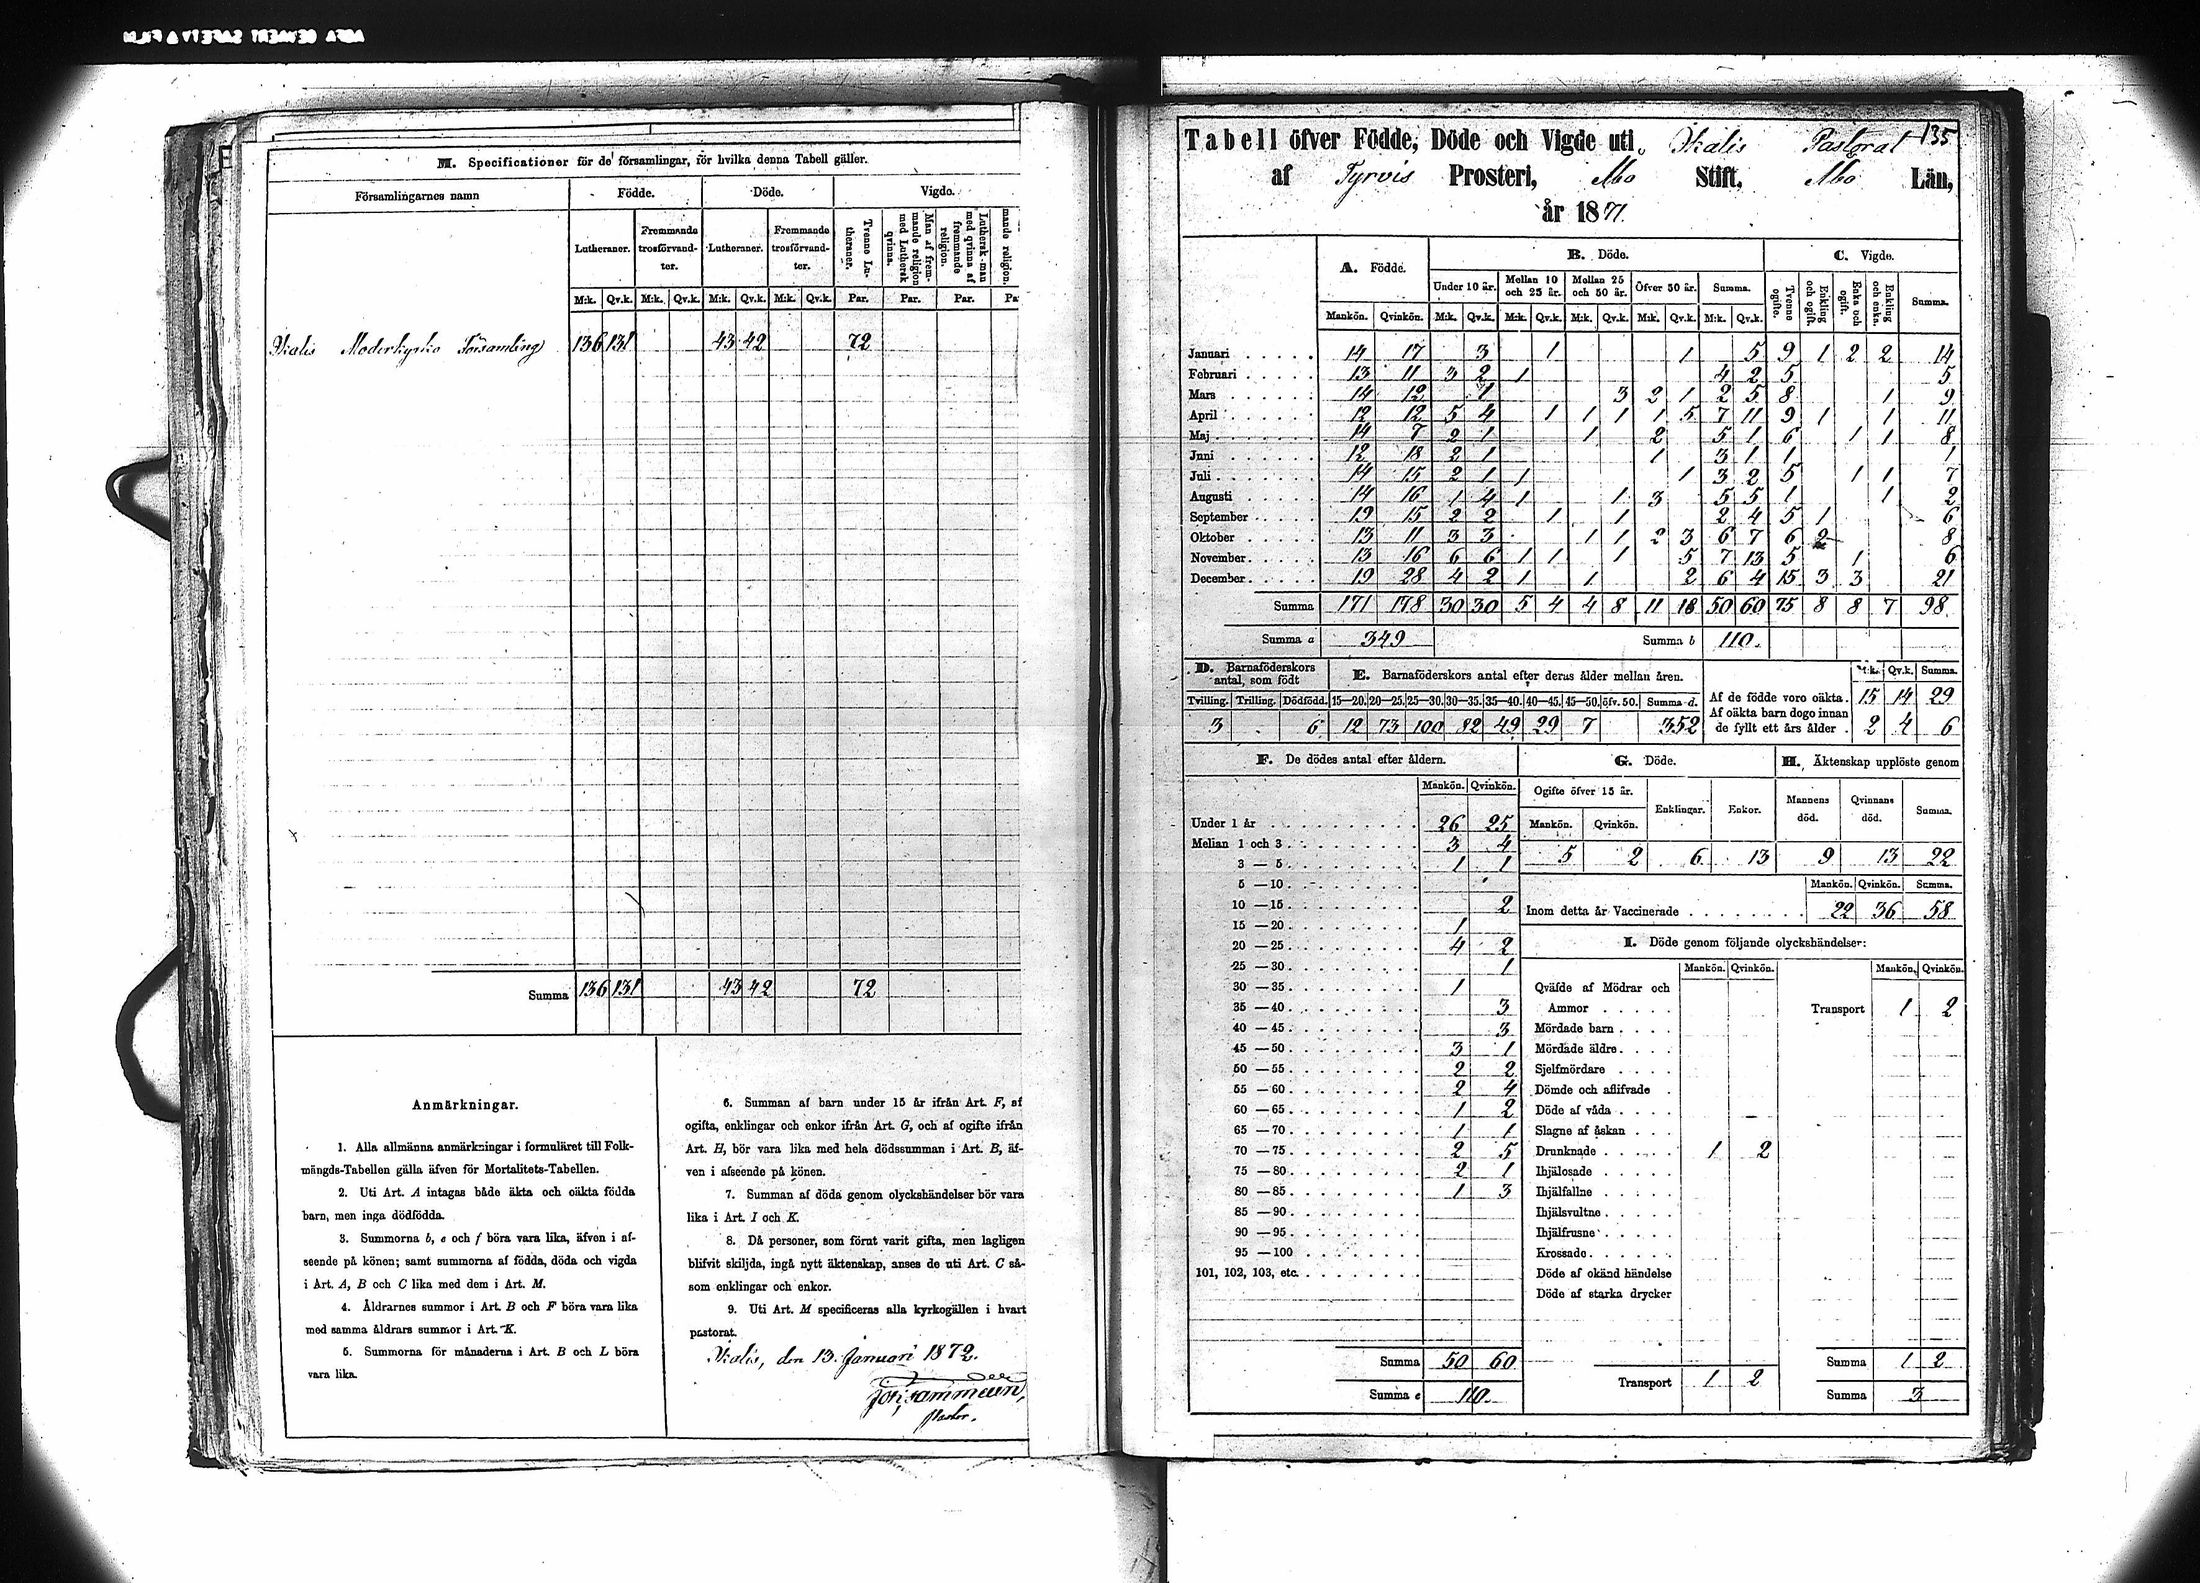 M. Specificationer för de församlingar, för hvilka denna Tabell gäller.
Församlingarnes namn Födde. Döde. Vigde.
Lutheraner. Fremmande trosförvandter. Lutheraner. Fremmande trosförvandter. Tvenne Lutheraner. Man af fremmande religion med Luthersk qvinna. Luthersk man med qvinna af fremmande religion. mande religion.
M:k. Qv.k. M:k. Qv.k. M:k. Qv.k. M:k. Qv.k. Par. Par. Par.
Ikalis Moderkyrko Församling 136 131 43 42 72
Summa 136 131 43 42 72
Anmärkningar.
1. Alla allmänna anmärkningar i formuläret till Folk-
mängds-Tabellen gälla äfven för Mortalitets-Tabellen.
2. Uti Art. A intagas både äkta och oäkta födda
barn, men inga dödfödda.
3. Summorna b, e och f böra vara lika, äfven i af-
seende på könen; samt summorna af födda, döda och vigda
i Art. A, B och C lika med dem i Art. M.
4. Åldrarnes summor i Art. B och F böra vara lika
med samma åldrars summor i Art. K.
5. Summorna för månaderna i Art. B och L böra
vara lika.
6. Summan af barn under 15 år ifrån Art. F, af
ogifta, enklingar och enkor ifrån Art. G, och af ogifte ifrån
Art. H, bör vara lika med hela dödssumman i Art. B, äf-
ven i afseende på könen.
7. Summan af döda genom olyckshändelser bör vara
lika i Art. I och K.
8. Då personer, som förut varit gifta, men lagligen
blifvit skiljda, ingå nytt äktenskap, anses de uti Art. C så-
som enklingar och enkor.
9. Uti Art. M specificeras alla kyrkogällen i hvart
pastorat.
Ikalis, den 13. Januari 1872.
Pastor.
135
Tabell öfver Födde, Döde och Vigde uti Ikalis Pastorat
af Tyrvis Prosteri, Åbo Stift, Åbo Län,
år 1871.
A. Födde. B. Döde. C. Vigde.
Under 10 år. Mellan 10 och 25 år. Mellan 25 och 50 år. Öfver 50 år. Summa. Tvenne ogifte. Enkling och ogift. Enka och ogift. Enkling och enka. Summa.
Mankön. Qvinkön. M:k. Qv.k. M:k. Qv.k. M:k. Qv.k. M:k. Qv.k. M:k. Qv.k.
Januari 14 17 3 1 1 5 9 1 2 2 14
Februari 13 11 3 2 1 4 2 5 5
Mars 14 12 1 3 2 1 2 5 8 1 9
April 12 12 5 4 1 1 1 1 5 7 11 9 1 1 11
Maj 14 7 2 1 1 2 5 1 6 1 1 8
Juni 12 18 2 1 1 3 1 1 1
Juli 14 15 2 1 1 1 3 2 5 1 1 7
Augusti 14 16 1 4 1 1 3 5 5 1 1 2
September 19 15 2 2 1 1 2 4 5 1 6
Oktober 13 11 3 3 1 1 2 3 6 7 6 2 8
November 13 16 6 6 1 1 1 5 7 13 5 1 6
December 19 28 4 2 1 1 2 6 4 15 3 3 21
Summa 171 178 30 30 5 4 4 8 11 18 50 60 75 8 8 7 98
Summa a 349 Summa b 110.
D. Barnaföderskors antal, som födt E. Barnaföderskors antal efter deras ålder mellan åren. M:k. Qv.k. Summa.
Tvilling. Trilling. Dödfödd. 15—20. 20—25. 25—30. 30—35. 35—40. 40—45. 45—50. öfv. 50. Summa d.
3 6 12 73 100 82 49 29 7 352
Af de födde voro oäkta. 15 14 29
Af oäkta barn dogo innan
de fyllt ett års ålder . 2 4 6
F. De dödes antal efter åldern.
Mankön. Qvinkön.
Under 1 år 26 25
Mellan 1 och 3 3 4
3 — 5 1 1
5 — 10
10 — 15 2
15 — 20 1
20 — 25 4 2
25 — 30 1
30 — 35 1
35 — 40 3
40 — 45 3
45 — 50 3 1
50 — 55 2 2
55 — 60 2 4
60 — 65 1 2
65 — 70 1 1
70 — 75 2 5
75 — 80 2 1
80 — 85 1 3
85 — 90
90 — 95
95 — 100
101, 102, 103, etc.
Summa 50 60
Summa e 110.
G. Döde. H. Äktenskap upplöste genom
Ogifte öfver 15 år. Enklingar. Enkor. Mannens död. Qvinnans död. Summa.
Mankön. Qvinkön.
5 2 6 13 9 13 22
Mankön. Qvinkön. Summa.
Inom detta år Vaccinerade 22 36 58
I. Döde genom följande olyckshändelser:
Mankön. Qvinkön. Mankön. Qvinkön.
Qväfde af Mödrar och
Ammor Transport 1 2
Mördade barn
Mördade äldre
Sjelfmördare
Dömde och aflifvade
Döde af våda
Slagne af åskan
Drunknade 1 2
Ihjälosade
Ihjälfallne
Ihjälsvultne
Ihjälfrusne
Krossade
Döde af okänd händelse
Döde af starka drycker
Summa 1 2
Transport 1 2
Summa 3